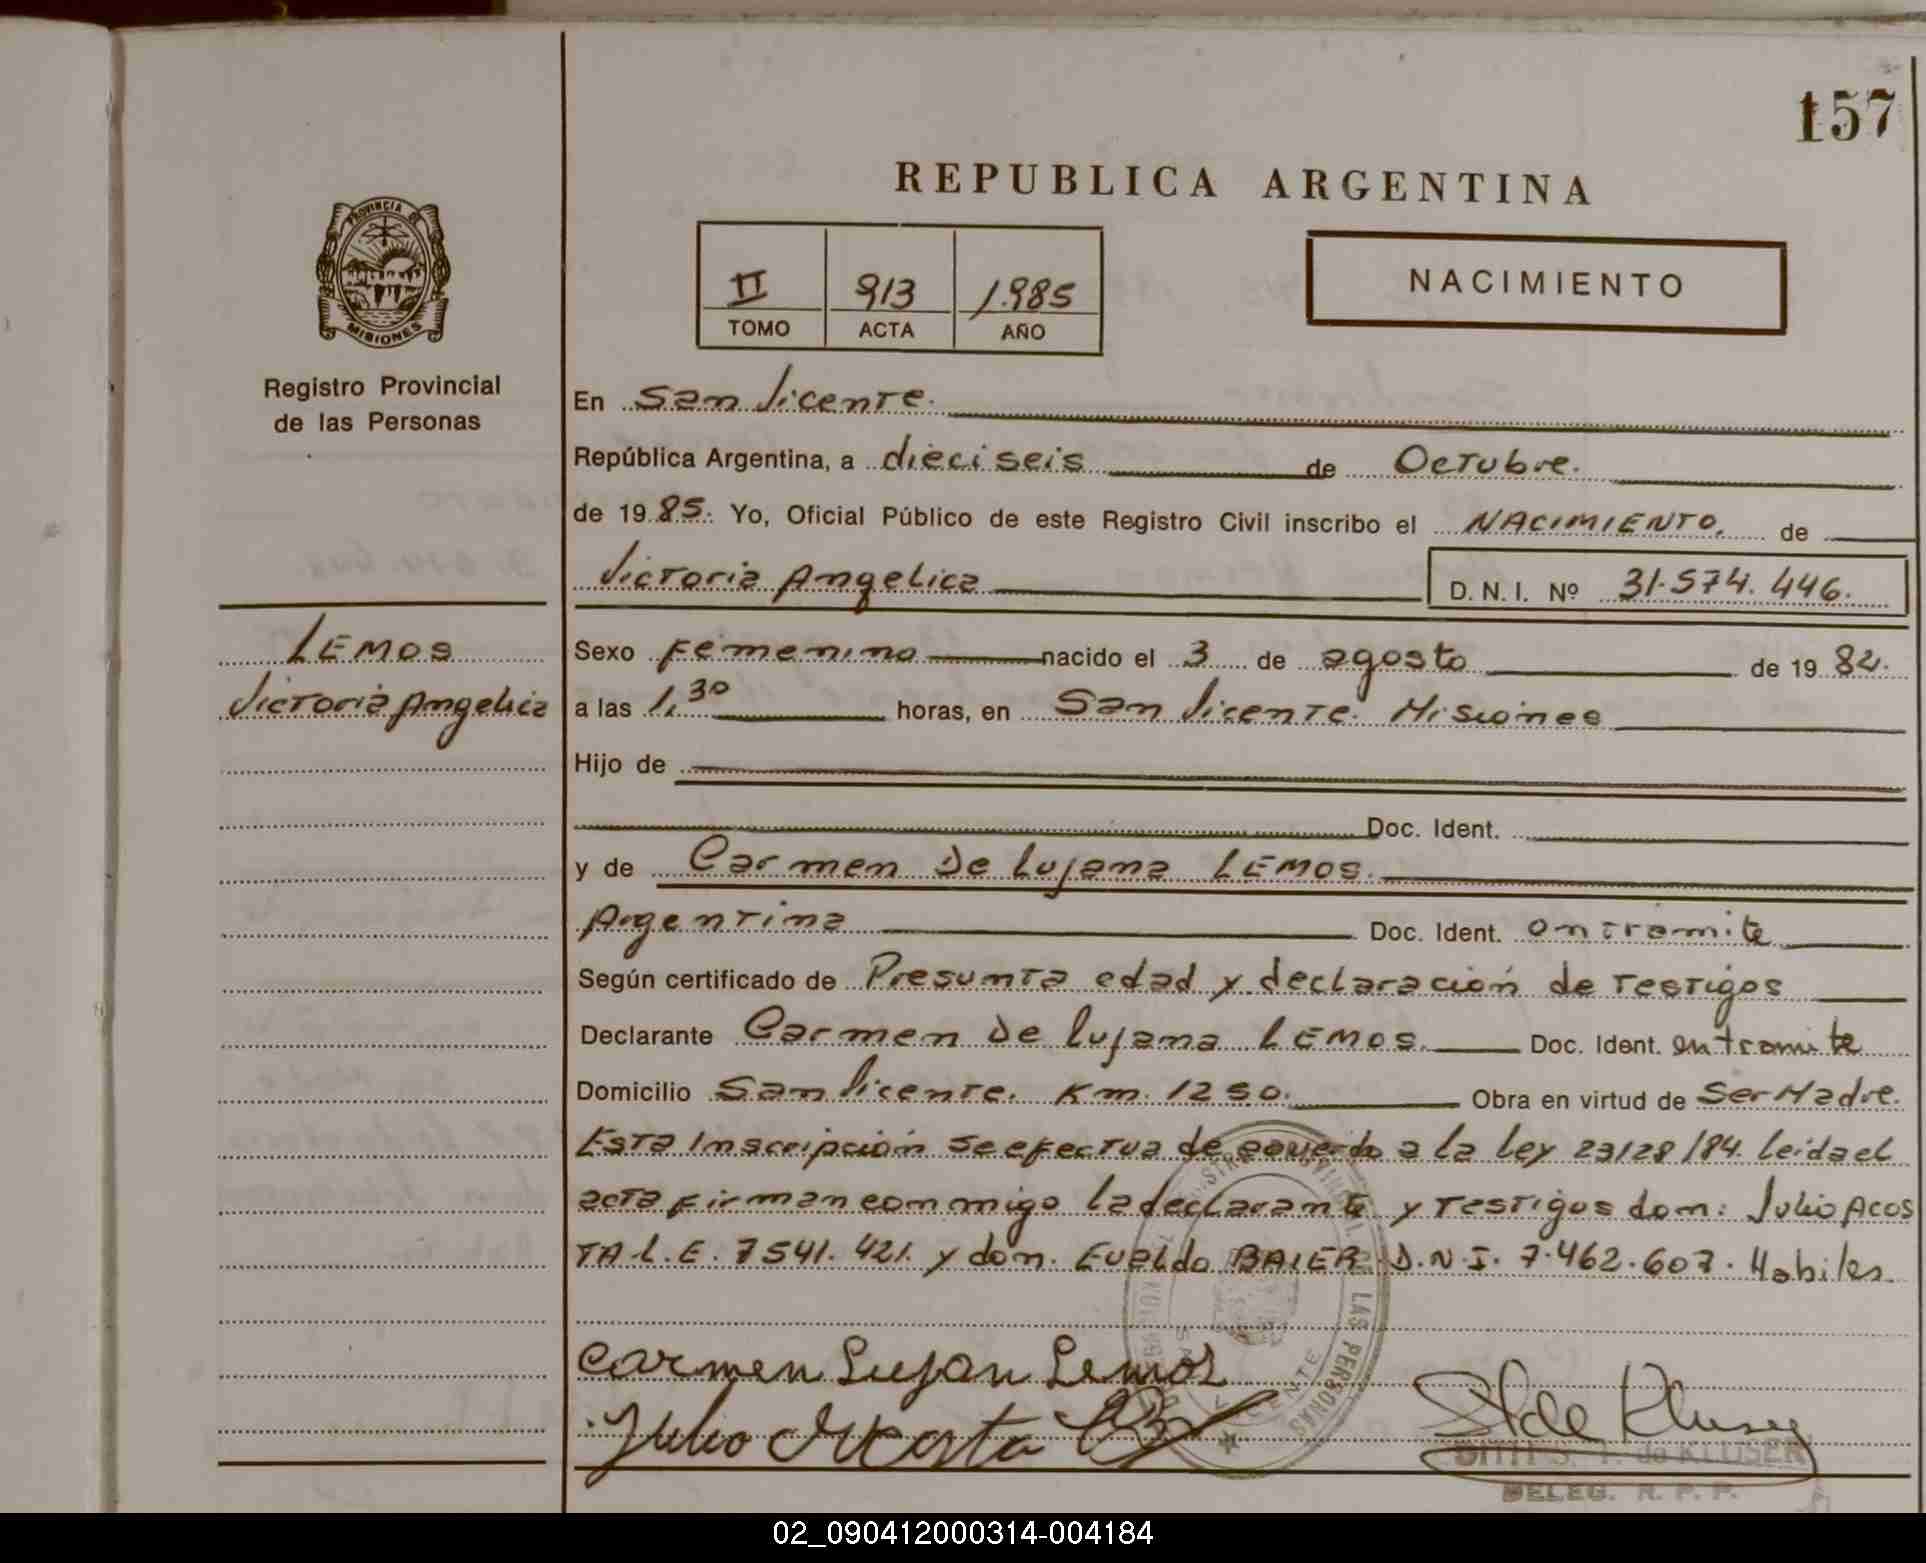 157
REPUBLICA ARGENTINA
PROVINCIA DE
MISIONES
Registro Provincial
de las Personas
II 913 1.985
TOMO ACTA AÑO
NACIMIENTO
En San Vicente.
República Argentina, a dieciseis de Octubre.
de 1985. Yo, Oficial Público de este Registro Civil inscribo el NACIMIENTO, de
Victoria Angelica D. N. I. Nº 31.574.446.
LEMOS
Victoria Angelica
Sexo Femenino nacido el 3 de agosto de 1982.
a las 1,30 horas, en San Vicente. Misiones
Hijo de
Doc. Ident.
y de Carmen De Lujana LEMOS.
Argentina Doc. Ident. en tramite
Según certificado de Presunta edad y declaración de Testigos
Declarante Carmen De Lujana LEMOS. Doc. Ident. en tramite
Domicilio San Vicente. Km. 1250. Obra en virtud de Ser Madre.
Esta Inscripción se efectua de acuerdo a la Ley 23128/84. leida el
acta firman conmigo la declarante y testigos don: Julio Acos
TA L.E. 7541.421. y don. Evaldo BAIER D.N.I. 7.462.607. Habiles.
Carmen Lujan Lemos
Julio Acosta
LAS PERSONAS
de KLUSER
DELEG. R. P. P.
02_090412000314-004184